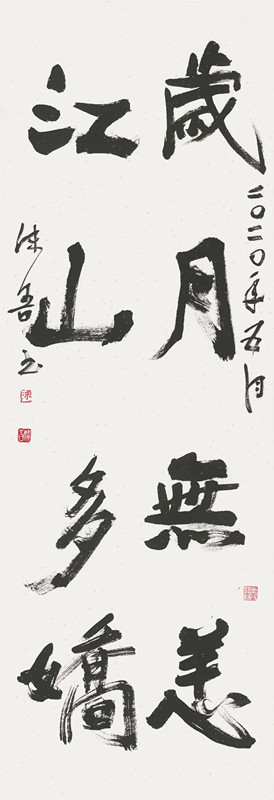 歲月無恙
二〇二〇年五月
江山多嬌